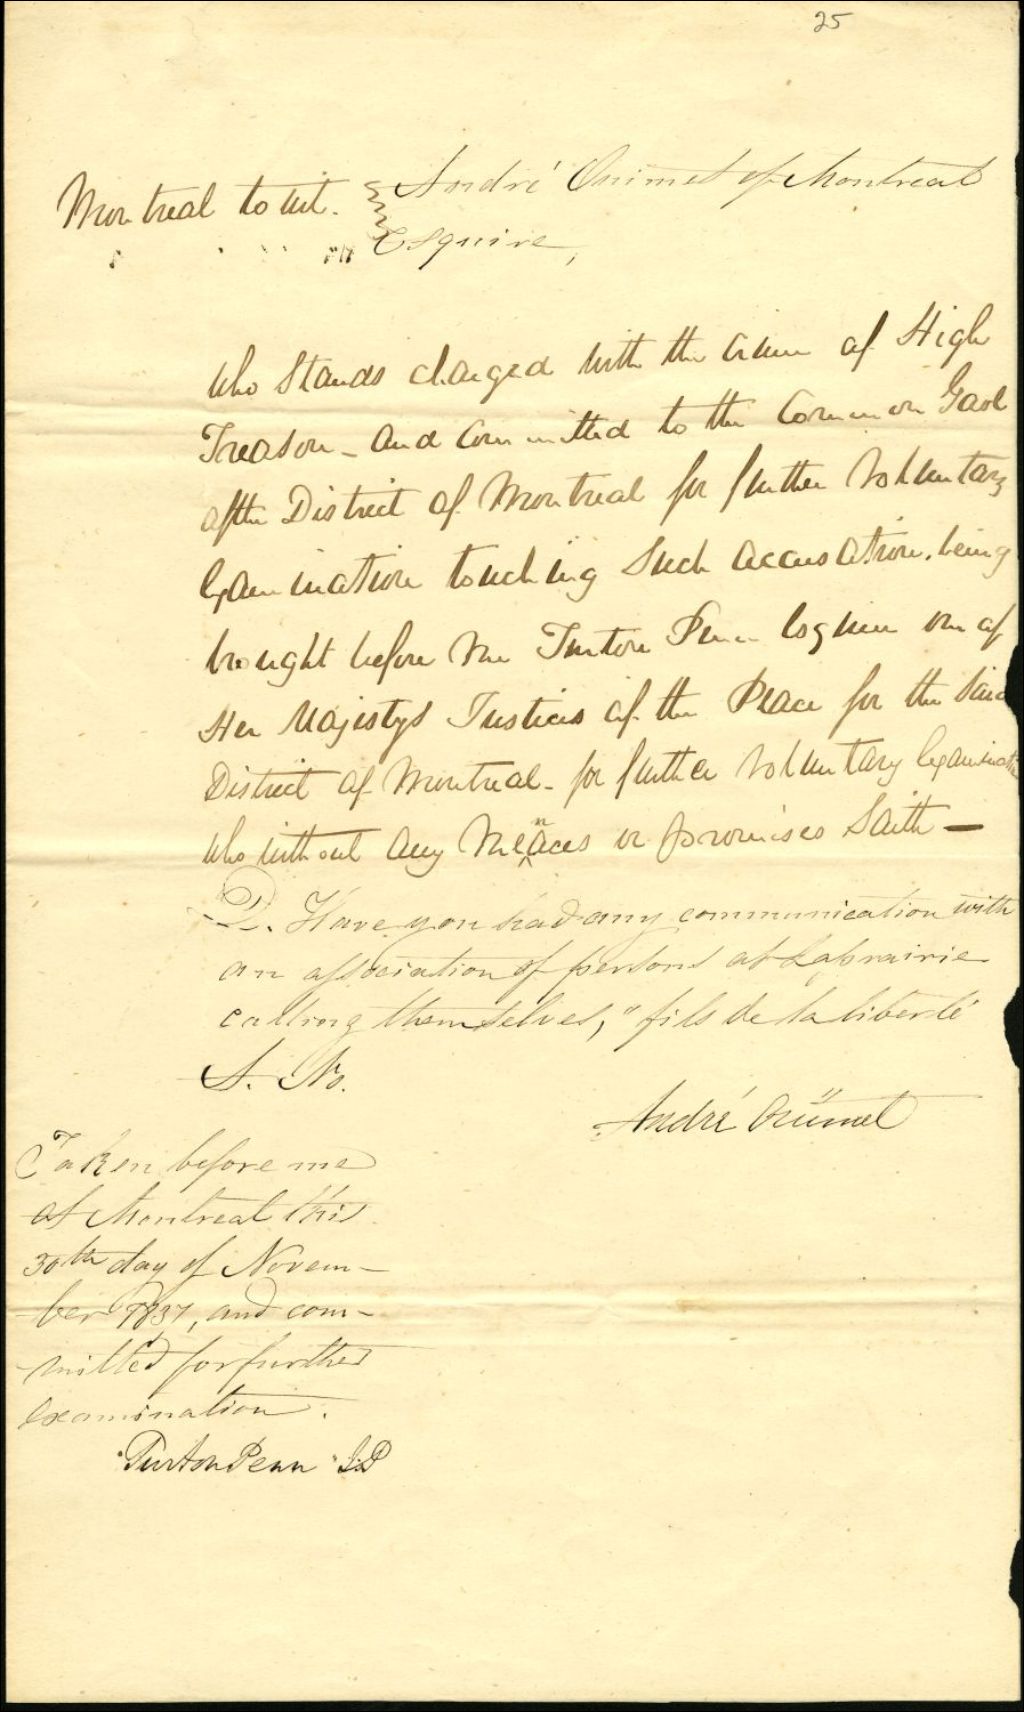 25
Montreal to wit. André Ouimet of Montreal
Esquire,
who stands charged with the crime of High
Treason - and committed to the Common Gaol
of the District of Montreal for further Voluntary
Examination touching such accusation. being
brought before me Turton Penn Esquire one of
Her Majestys Justices of the Peace for the said
District of Montreal - for further Voluntary Examination
who without any Menaces or promises Saith —
Q. Have you had any communication with
an association of persons at Laprairie
calling themselves, "fils de la liberté
A. No.
André Ouimet
Taken before me
at Montreal this
30th day of Novem-
ber 1837, and com-
mitted for further
examination.
Turton Penn J.P